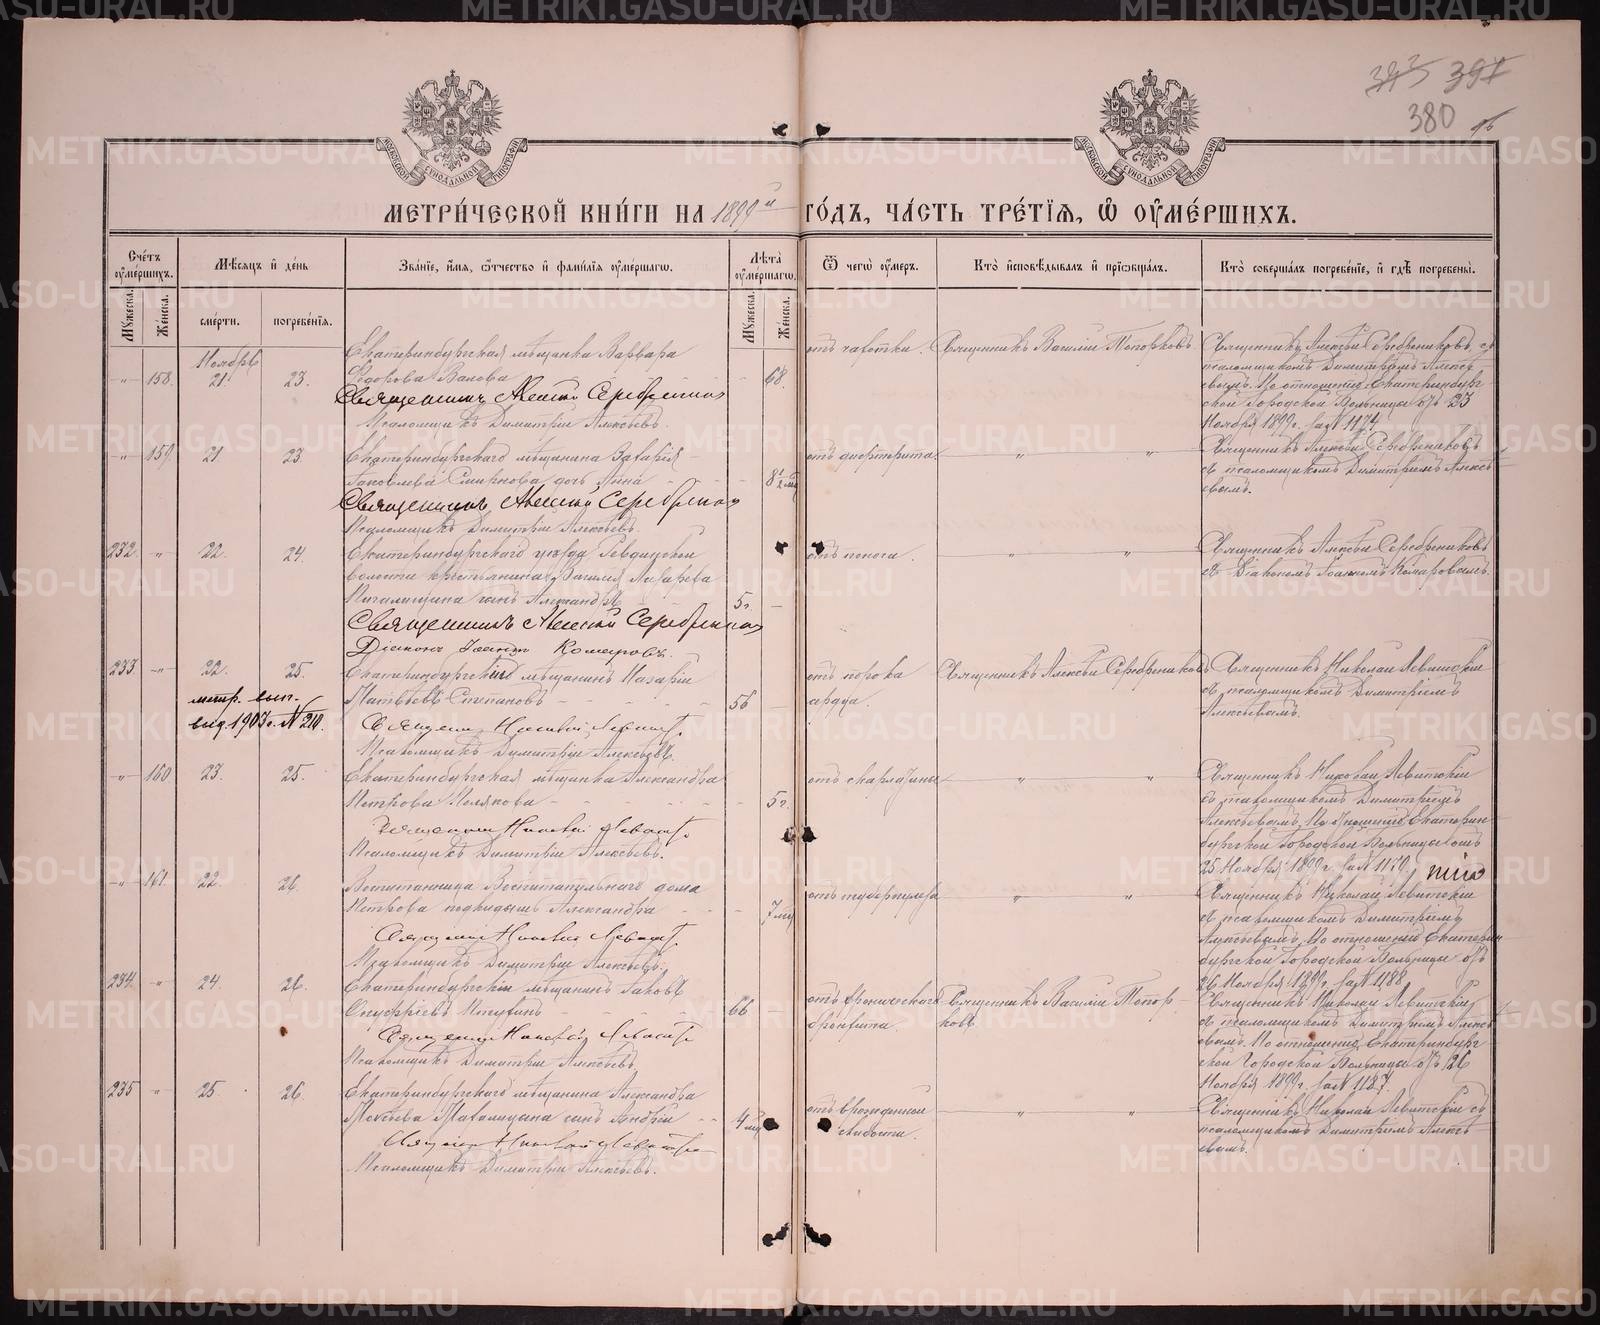 392 391
380 об
МОСКОВСКОЙ СУНОДАЛЬНОЙ ТИПОГРАФІИ
МОСКОВСКОЙ СУНОДАЛЬНОЙ ТИПОГРАФІИ
МЕТРИ́ЧЕСКОЙ КНИ́ГИ НА 1899й ГО́ДЪ, ЧА́СТЬ ТРЕ́ТІѦ, Ѡ ОУМЕ́РШИХЪ.
Сче́тъ оумéршихъ.
Мѣ́сѧцъ и́ де́нь
Зва́нїе, и́мѧ, ѻ́тчество и́ фами́лїѧ оумéршагѡ.
Лѣ́та оумéршагѡ.
Ѿ чегѡ̀ оу́меръ.
Кто̀ и҆сповѣ́дывалъ и́ прїѡбща́лъ.
Кто̀ соверша́лъ погребе́нїе, и́ гдѣ̀ погребены̀.
Мꙋ́жеска.
Же́нска.
сме́рти.
погребе́нїѧ.
Мꙋ́жеска.
Же́нска.
Ноябрь
„ 158. 21. 23. Екатеринбургская мѣщанка Варвара
Ѳедорова Валова 68.
Священникъ Алексій Серебренниковъ
Псаломщикъ Димитрій Алексѣевъ.
отъ чахотки. Священникъ Василій Топорковъ
Священникъ Алексѣй Серебрениковъ, съ
псаломщикомъ Димитріемъ Алексѣ-
евымъ. По отношенію Екатеринбург-
ской Городской Больницы отъ 23
Ноября 1899 г. за № 1174.
„ 159. 21 23. Екатеринбургскаго мѣщанина Захарія
Яковлева Смирнова дочь Анна 8½ мц
Священникъ Алексій Серебренниковъ
Псаломщикъ Димитрій Алексѣевъ.
отъ диѳтерита. „ „
Священникъ Алексѣй Серебрениковъ
съ псаломщикомъ Димитріемъ Алексѣ-
евымъ.
232. „ 22. 24. Екатеринбургскаго уѣзда Ревдинской
волости крестьянина Василія Лазарева
сынъ Александръ 5 г.
Священникъ Алексій Серебренниковъ
Діаконъ Іоаннъ Комаровъ.
отъ поноса. „ „
Священникъ Алексѣй Серебрениковъ
съ Діакономъ Іоанномъ Комаровымъ.
233 „ 22. 25. Екатеринбургскій мѣщанинъ Назарій
Матвѣевъ Степановъ 56
метр. вып.
выд. 1903 г. № 210.
Священникъ Николай Левитскій
Псаломщикъ Димитрій Алексѣевъ.
отъ порока
сердца. Священникъ Алексѣй Серебрениковъ
Священникъ Николай Левитскій
съ псаломщикомъ Димитріемъ
Алексѣевымъ.
„ 160 23. 25. Екатеринбургская мѣщанка Александра
Петрова Полякова 5 г.
Священникъ Николай Левитскій
Псаломщикъ Димитрій Алексѣевъ.
отъ скарлатины „ „
Священникъ Николай Левитскій
съ псаломщикомъ Димитріемъ
Алексѣевымъ. По отношенію Екатерин-
бургской Городской Больницы отъ
25 Ноября 1899 г. за № 1170.
„ 161 22. 26. Воспитанница Воспитательнаго дома
Петрова подкидышъ Александра 7 мц
Священникъ Николай Левитскій
Псаломщикъ Димитрій Алексѣевъ.
отъ туберкулеза „ „
Священникъ Николай Левитскій
съ псаломщикомъ Димитріемъ
Алексѣевымъ. По отношенію Екатерин-
бургской Городской Больницы отъ
26 Ноября 1899 г. за № 1188
234 „ 24. 26. Екатеринбургскій мѣщанинъ Яковъ
Онуфріевъ 66
Священникъ Николай Левитскій
Псаломщикъ Димитрій Алексѣевъ.
отъ хроническаго
бронхита. Священникъ Василій Топор-
ковъ
Священникъ Николай Левитскій
съ псаломщикомъ Димитріемъ Алексѣ-
евымъ. По отношенію Екатеринбург-
ской Городской Больницы отъ 26
Ноября 1899 г. за № 1187.
235 „ 25. 26. Екатеринбургскаго мѣщанина Александра
сынъ Андрей 4 мц
Священникъ Николай Левитскій
Псаломщикъ Димитрій Алексѣевъ.
отъ врожденной
слабости. „ „
Священникъ Николай Левитскій съ
псаломщикомъ Димитріемъ Алексѣ-
евымъ.
METRIKI.GASO-URAL.RU